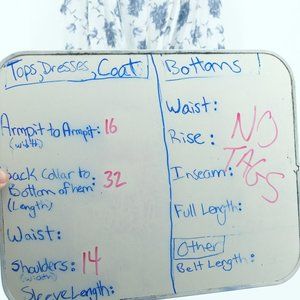 Tops, Dresses, Coat
Armpit to Armpit: 16
(width)
Back Collar to
Bottom of hem: 32
(Length)
Waist:
Shoulders: 14
(width)
Sleeve Length:
Bottoms!
Waist:
Rise:
Inseam:
Full Length:
Other
Belt Length:
NO
TAGS